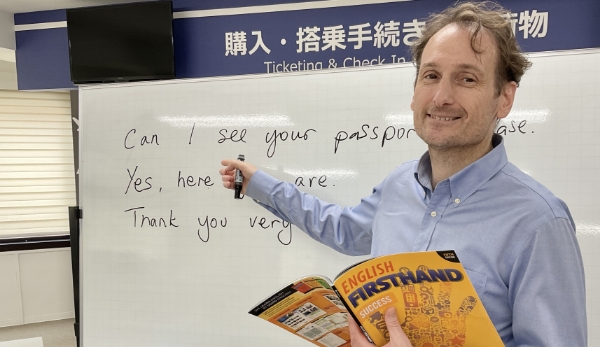 購入・搭乗手続き 物
Ticketing & Check In
Can I see your passpor ase.
Yes, here are.
Thank you very
ENGLISH
FIRSTHAND
SUCCESS